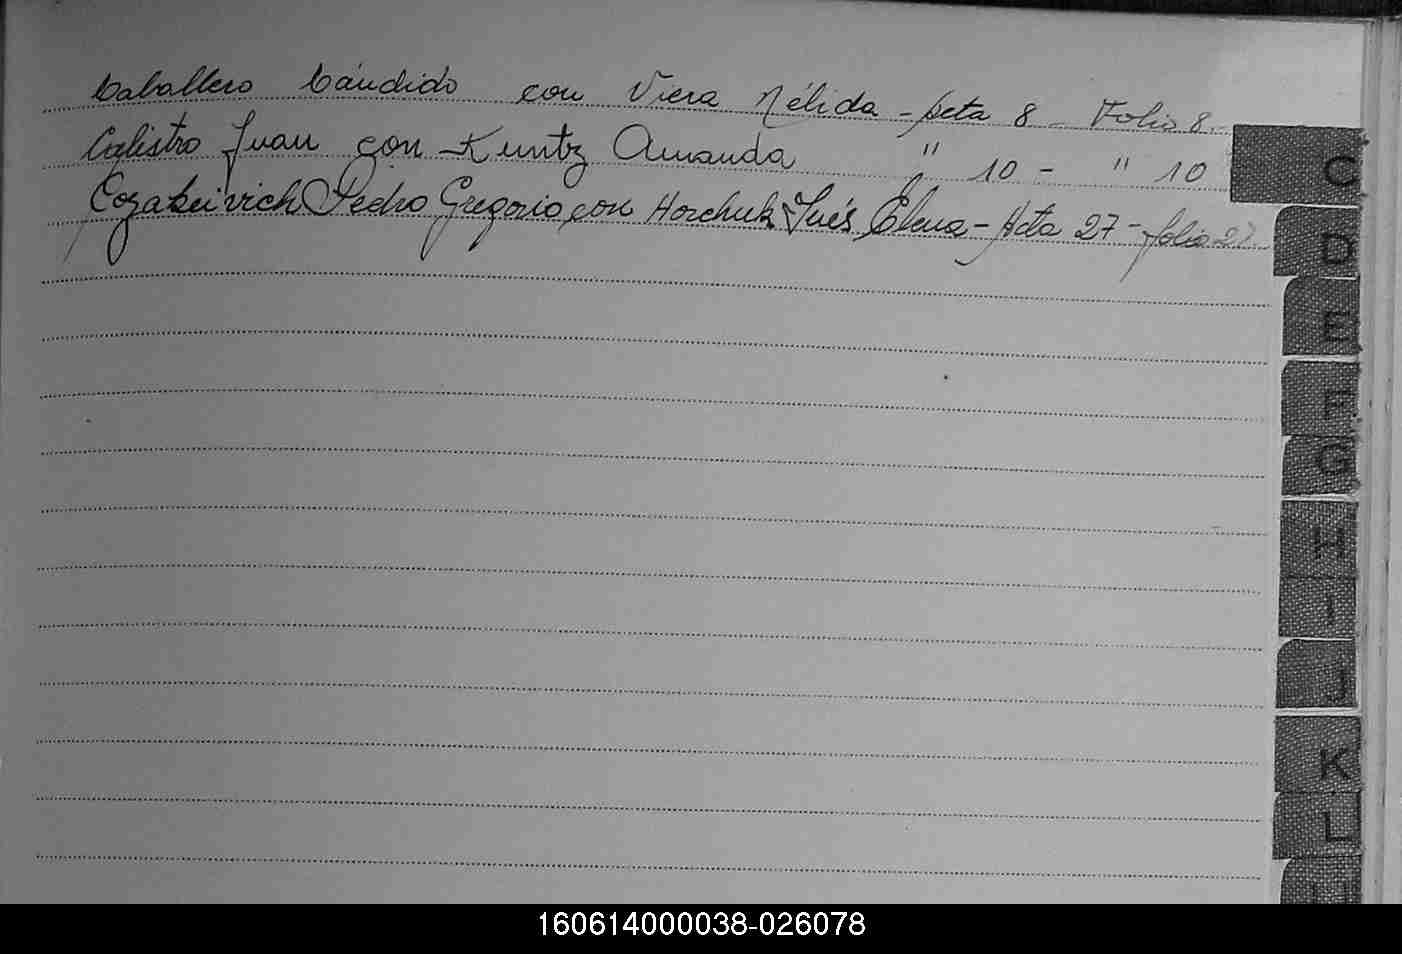 Caballero Cándido con Viera Nélida - Acta 8 - Folio 8.
Calistro Juan con Kuntz Amanda " 10 - " 10
Cozakeivich Pedro Gregorio con Horchuk Inés Elena - Acta 27 - folio 27.
C
D
E
F
G
H
I
J
K
L
160614000038-026078